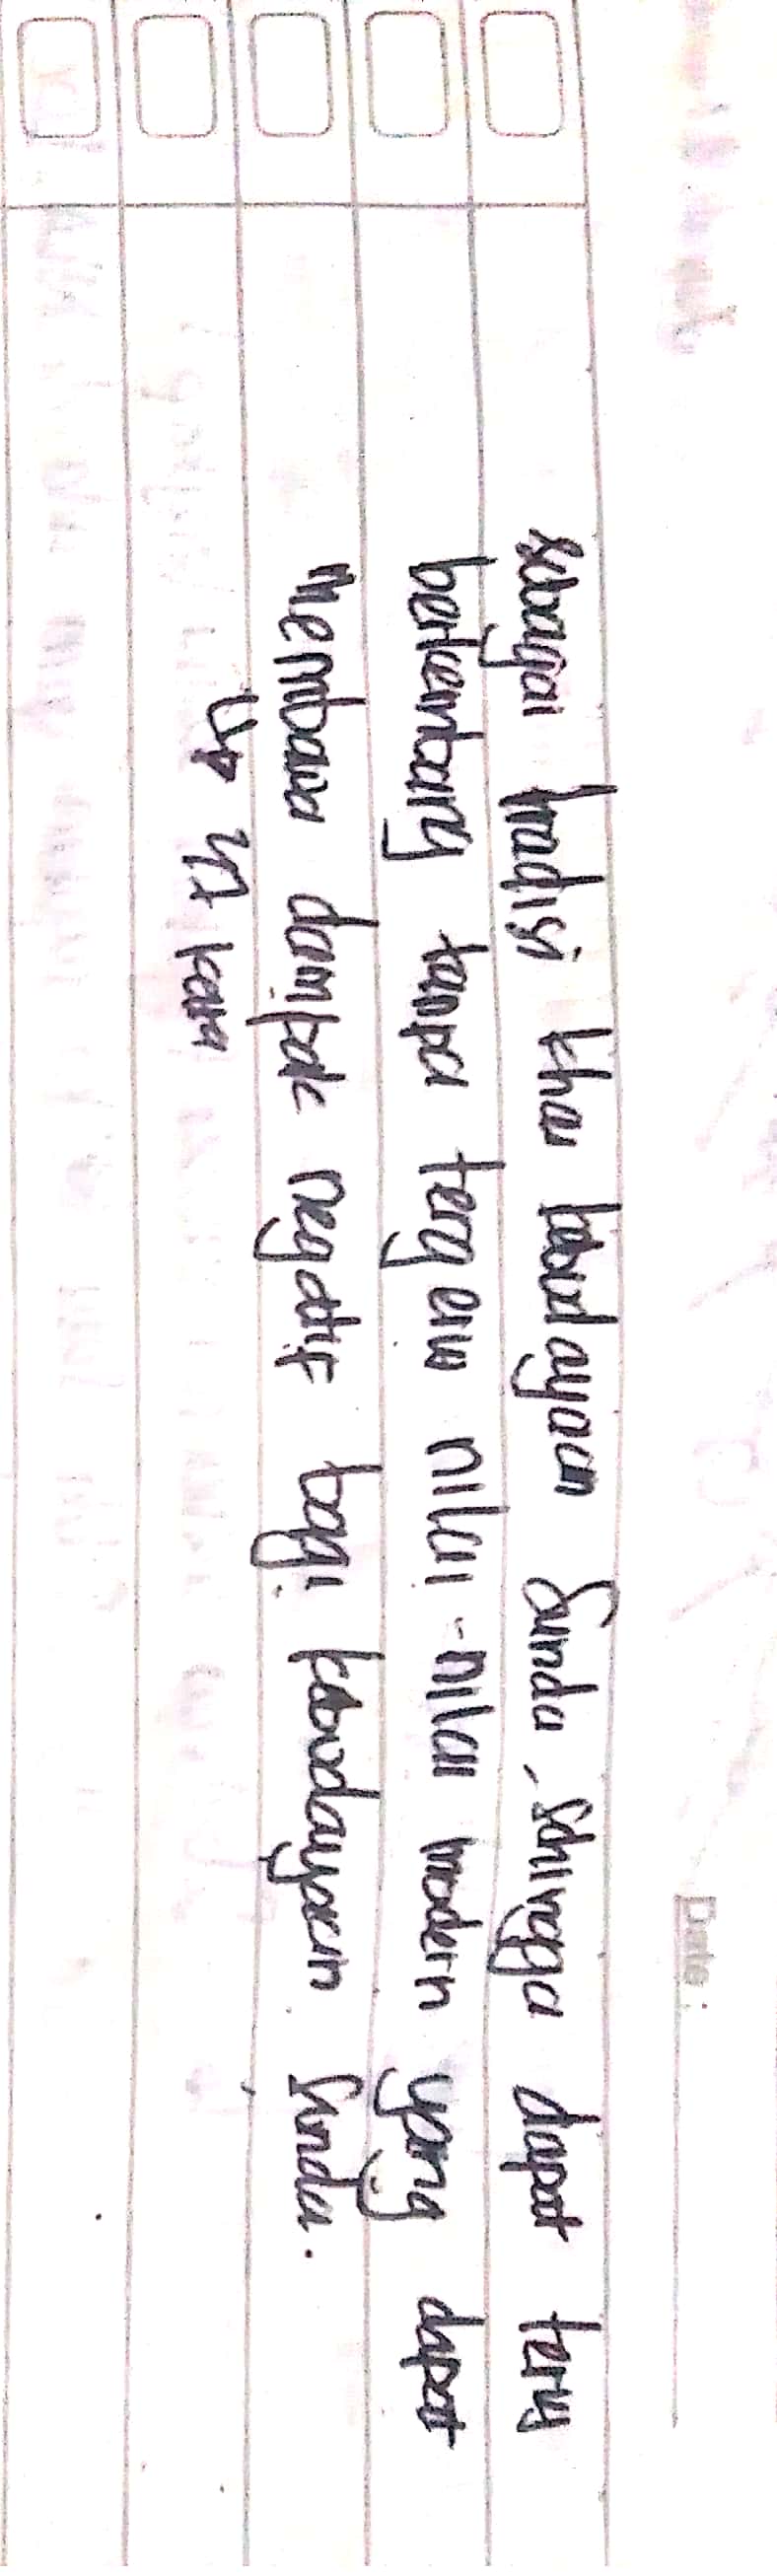 Date:
sebagai tradisi khas kebudayaan Sunda, sehingga dapat terus
berkembang tanpa tergerus nilai-nilai modern yang dapat
membawa dampak negatif bagi kebudayaan Sunda.
47 kata